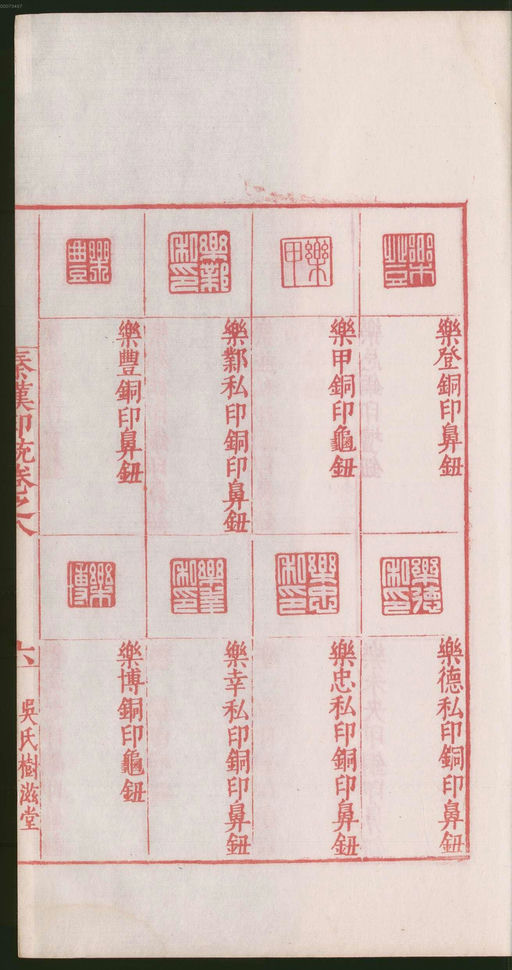 樂登銅印鼻鈕
樂甲銅印龜鈕
樂鄴私印銅印鼻鈕
樂豐銅印鼻鈕
樂德私印銅印鼻鈕
樂忠私印銅印鼻鈕
樂幸私印銅印鼻鈕
樂博銅印龜鈕
秦漢印統卷之八
六
吳氏樹滋堂